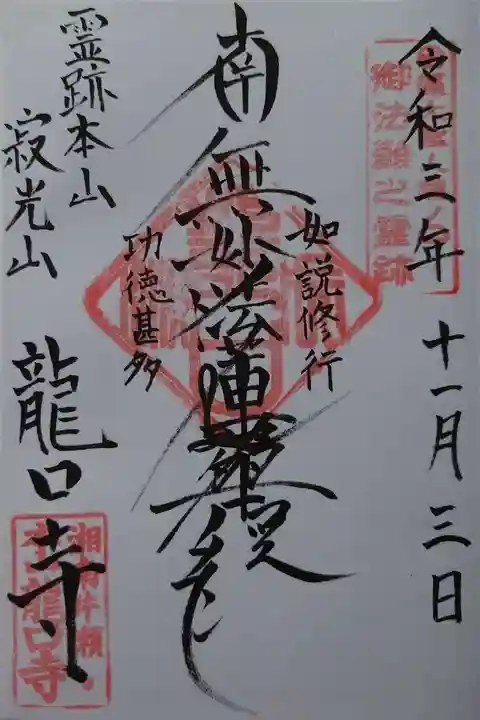 令和三年 十一月三日
御法難之霊跡
如説修行
南無妙法蓮華経
功徳甚多
霊跡本山
寂光山
龍口寺
龍口寺